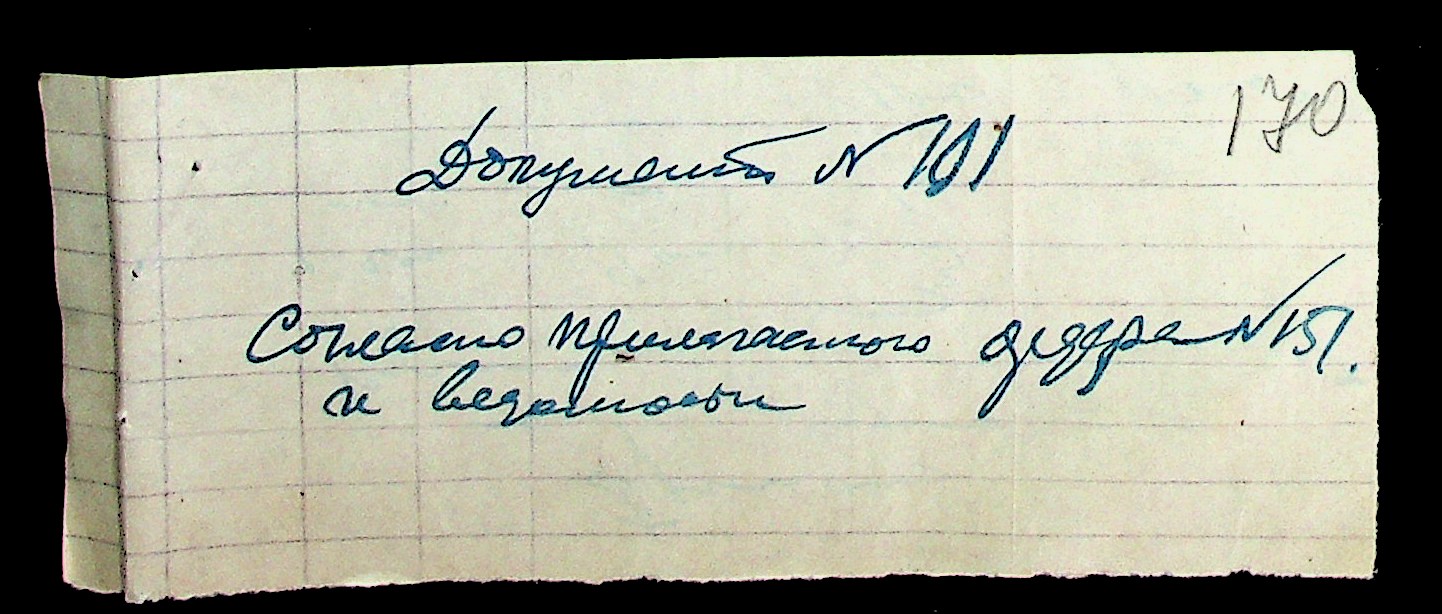 170
Документ № 101
Согласно прилагаемого ордера № 151.
и ведомости